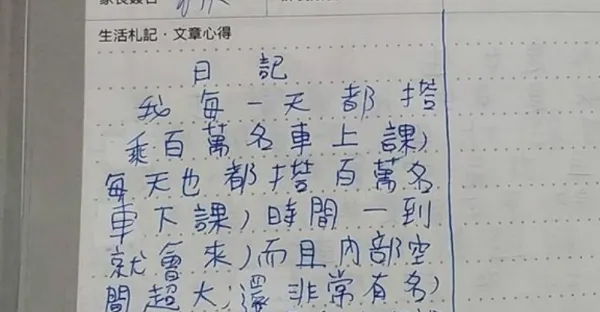 生活札記·文章心得
日記
我每一天都搭
乘百萬名車上課，
每天也都搭百萬名
車下課，時間一到
就會來，而且內部空
間超大，還非常有名，